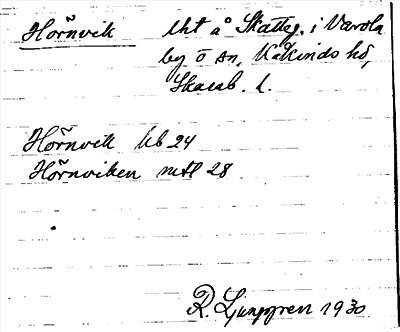 Hörnvik lht å Skatteg. i Varola
by o sn, Kåkinds hd,
Skarab. l.
Hörnvik hb 24
Hörnviken mtl 28
R. Ljunggren 1930